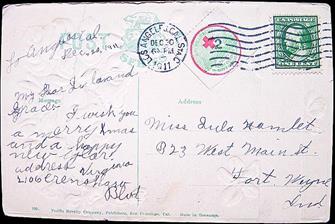 POST
LOS ANGELES, CAL. STA. C
DEC 20
1911
2
Los Angeles, Cal
Dec 20, 1911
My Dear Lula and
Grace: I wish you
a merry Xmas
and a happy
new year
address Virginia
2106 Crenshaw
Blvd
Message
Address
Miss Lula Hamlet
823 West Main St.
Fort Wayne
Ind
Pacific Novelty Company, Publishers, San Francisco, Cal.
Made in Germany